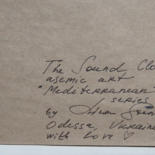 The Sound Clo
asemic art
"Mediterranean
series
by
Odessa, Ukraine
with Love ♡